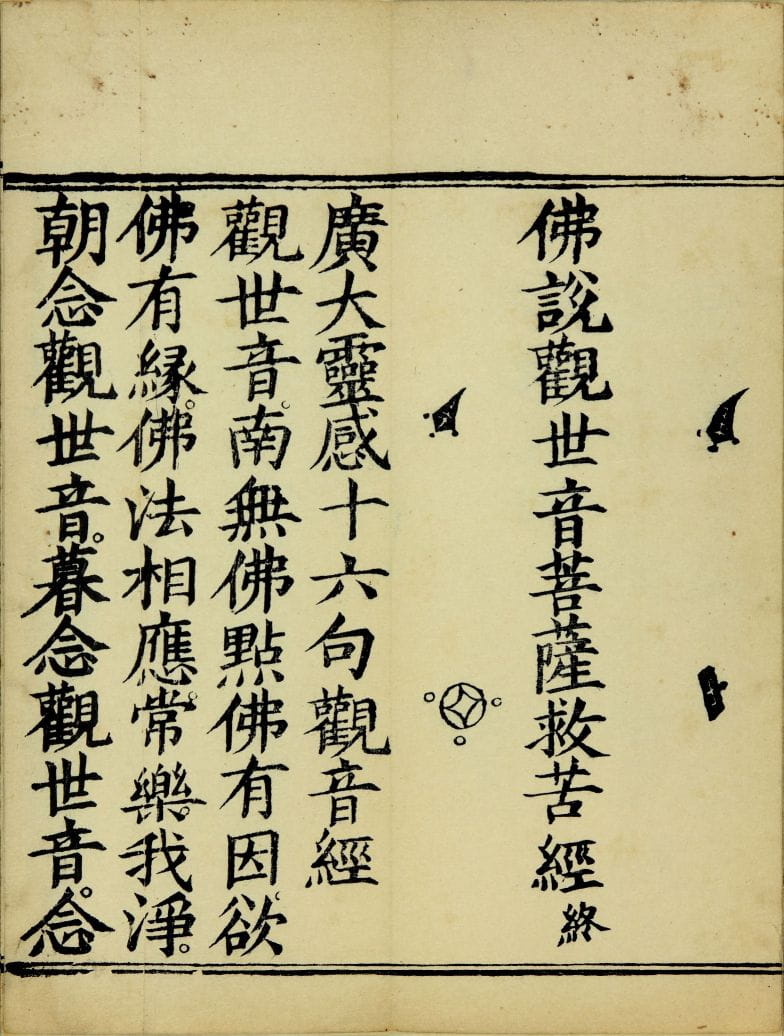 佛說觀世音菩薩救苦經終
廣大靈感十六句觀音經
觀世音。南無佛點佛有因。欲
佛有縁。佛法相應。常樂。我淨。
朝念觀世音。暮念觀世音。念